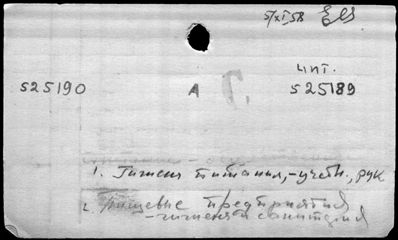 5/XI 58
чит.
525190 А С. 525189
1. Гигиена питания, -учебн., рук
2. Пищевые предприятия
-гигиена и санитария